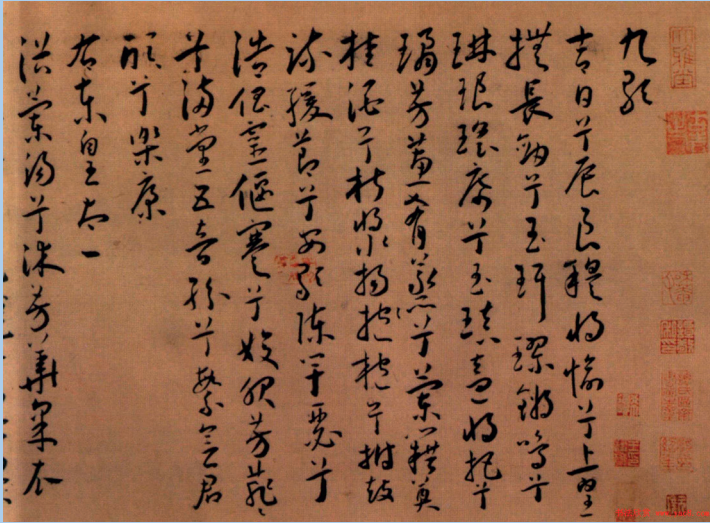 九歌
吉日兮辰良穆將愉兮上皇
撫長劍兮玉珥璆鏘鳴兮
琳琅瑤席兮玉瑱盍將把兮
瓊芳蕙肴蒸兮蘭藉奠
桂酒兮椒漿揚抱枹兮拊鼓
疏緩節兮安歌陳竽瑟兮
浩倡靈偃蹇兮姣服芳菲菲
兮滿堂五音紛兮繁會君
欣兮樂康
右東皇太一
浴蘭湯兮沐芳華采衣